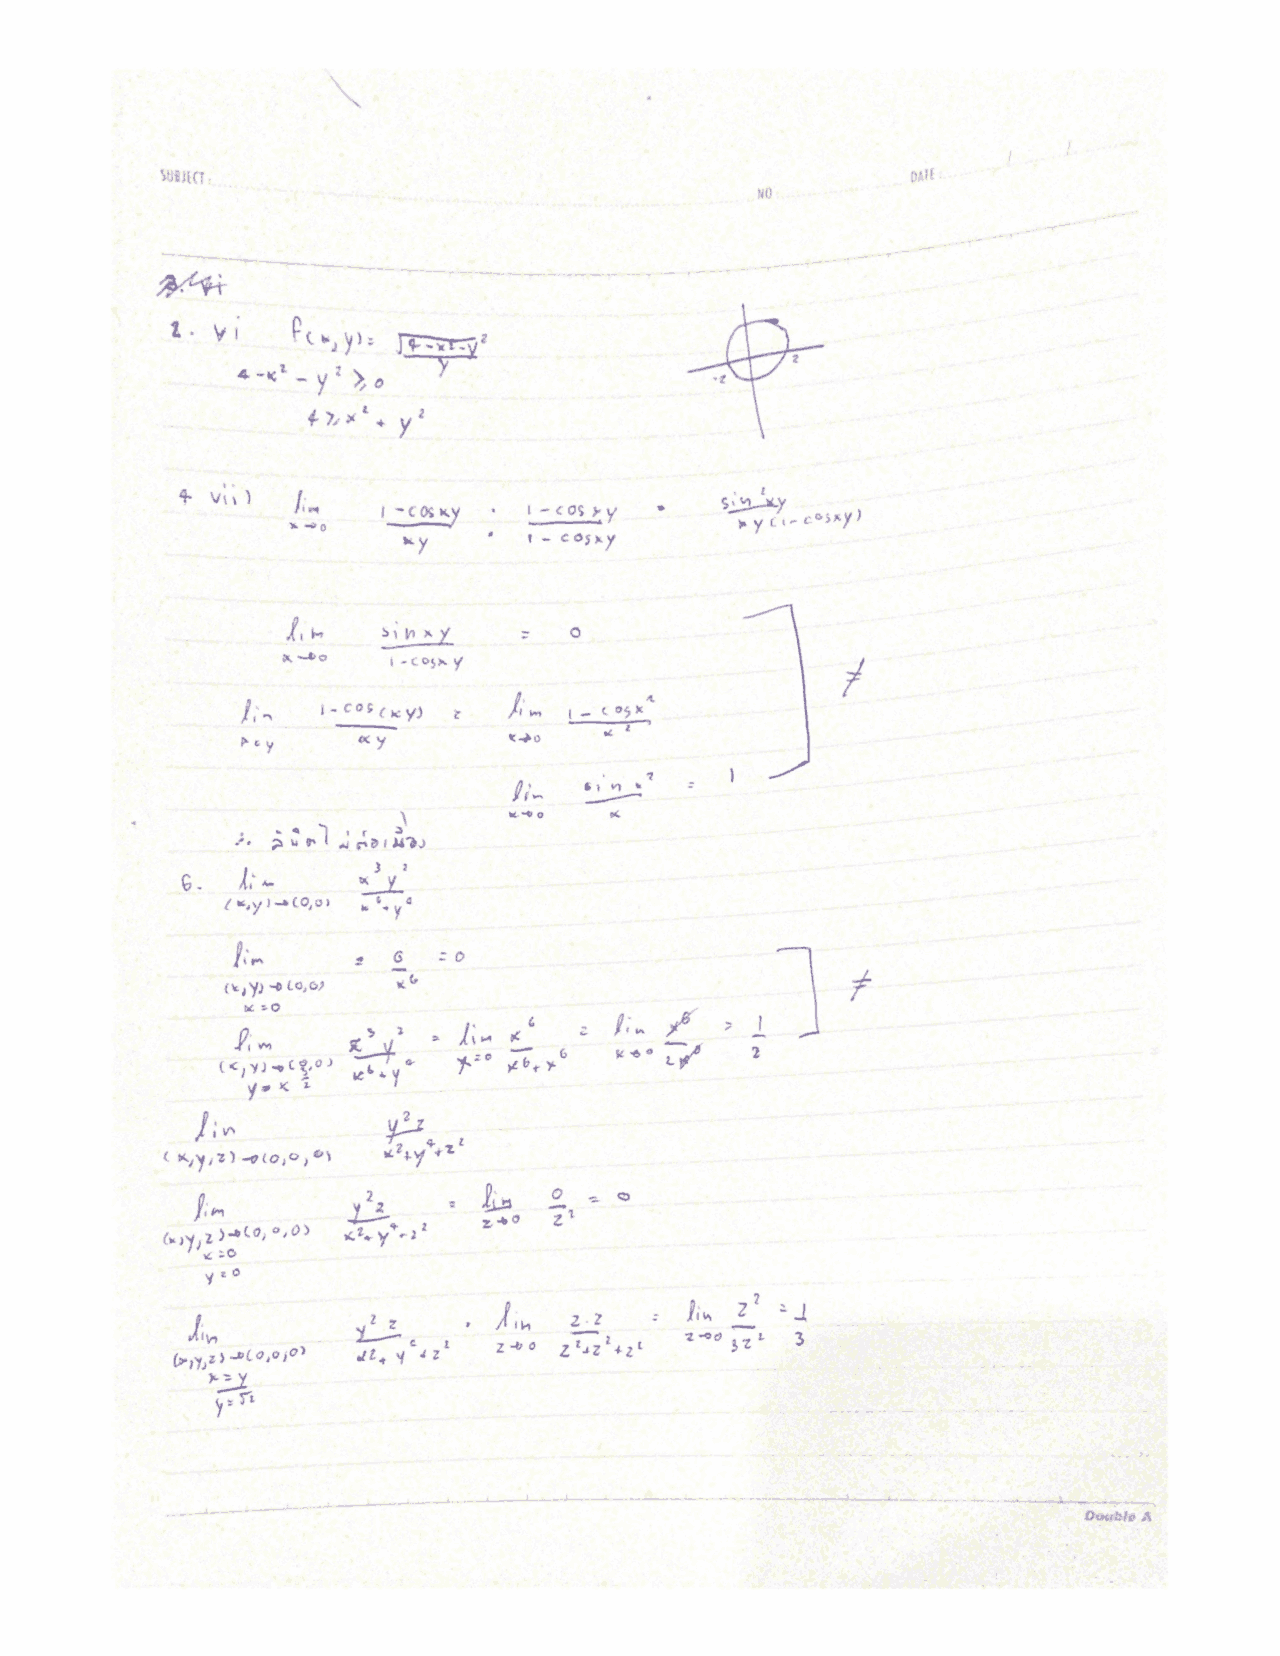 SUBJECT :
NO
DATE : / /
2. vi f(x,y) = √(4-x²-y²)/y
4-x² - y² ≥ 0
4 ≥ x² + y²
-2 2
4 vii) lim x→0 (1-cosxy)/(xy) · (1-cosxy)/(1-cosxy) = sin²xy/(xy(1-cosxy))
lim x→0 sinxy/(1-cosxy) = 0
≠
lim x=y (1-cos(xy))/(xy) = lim x→0 (1-cosx²)/x²
lim x→0 sinx²/x = 1
∴ ลิมิตไม่ต่อเนื่อง
6. lim (x,y)→(0,0) x³y²/(x⁶+y⁴)
lim (x,y)→(0,0) x=0 = 0/x⁶ = 0
≠
lim (x,y)→(0,0) y=x^(3/2) x³y²/(x⁶+y⁴) = lim x=0 x⁶/(x⁶+x⁶) = lim x→0 x⁶/2x⁶ = 1/2
lim (x,y,z)→(0,0,0) y²z/(x²+y⁴+z²)
lim (x,y,z)→(0,0,0) x=0 y=0 y²z/(x²+y⁴+z²) = lim z→0 0/z² = 0
lim (x,y,z)→(0,0,0) x=y y=√z y²z/(x²+y⁴+z²) = lim z→0 z·z/(z²+z²+z²) = lim z→0 z²/3z² = 1/3
Double A